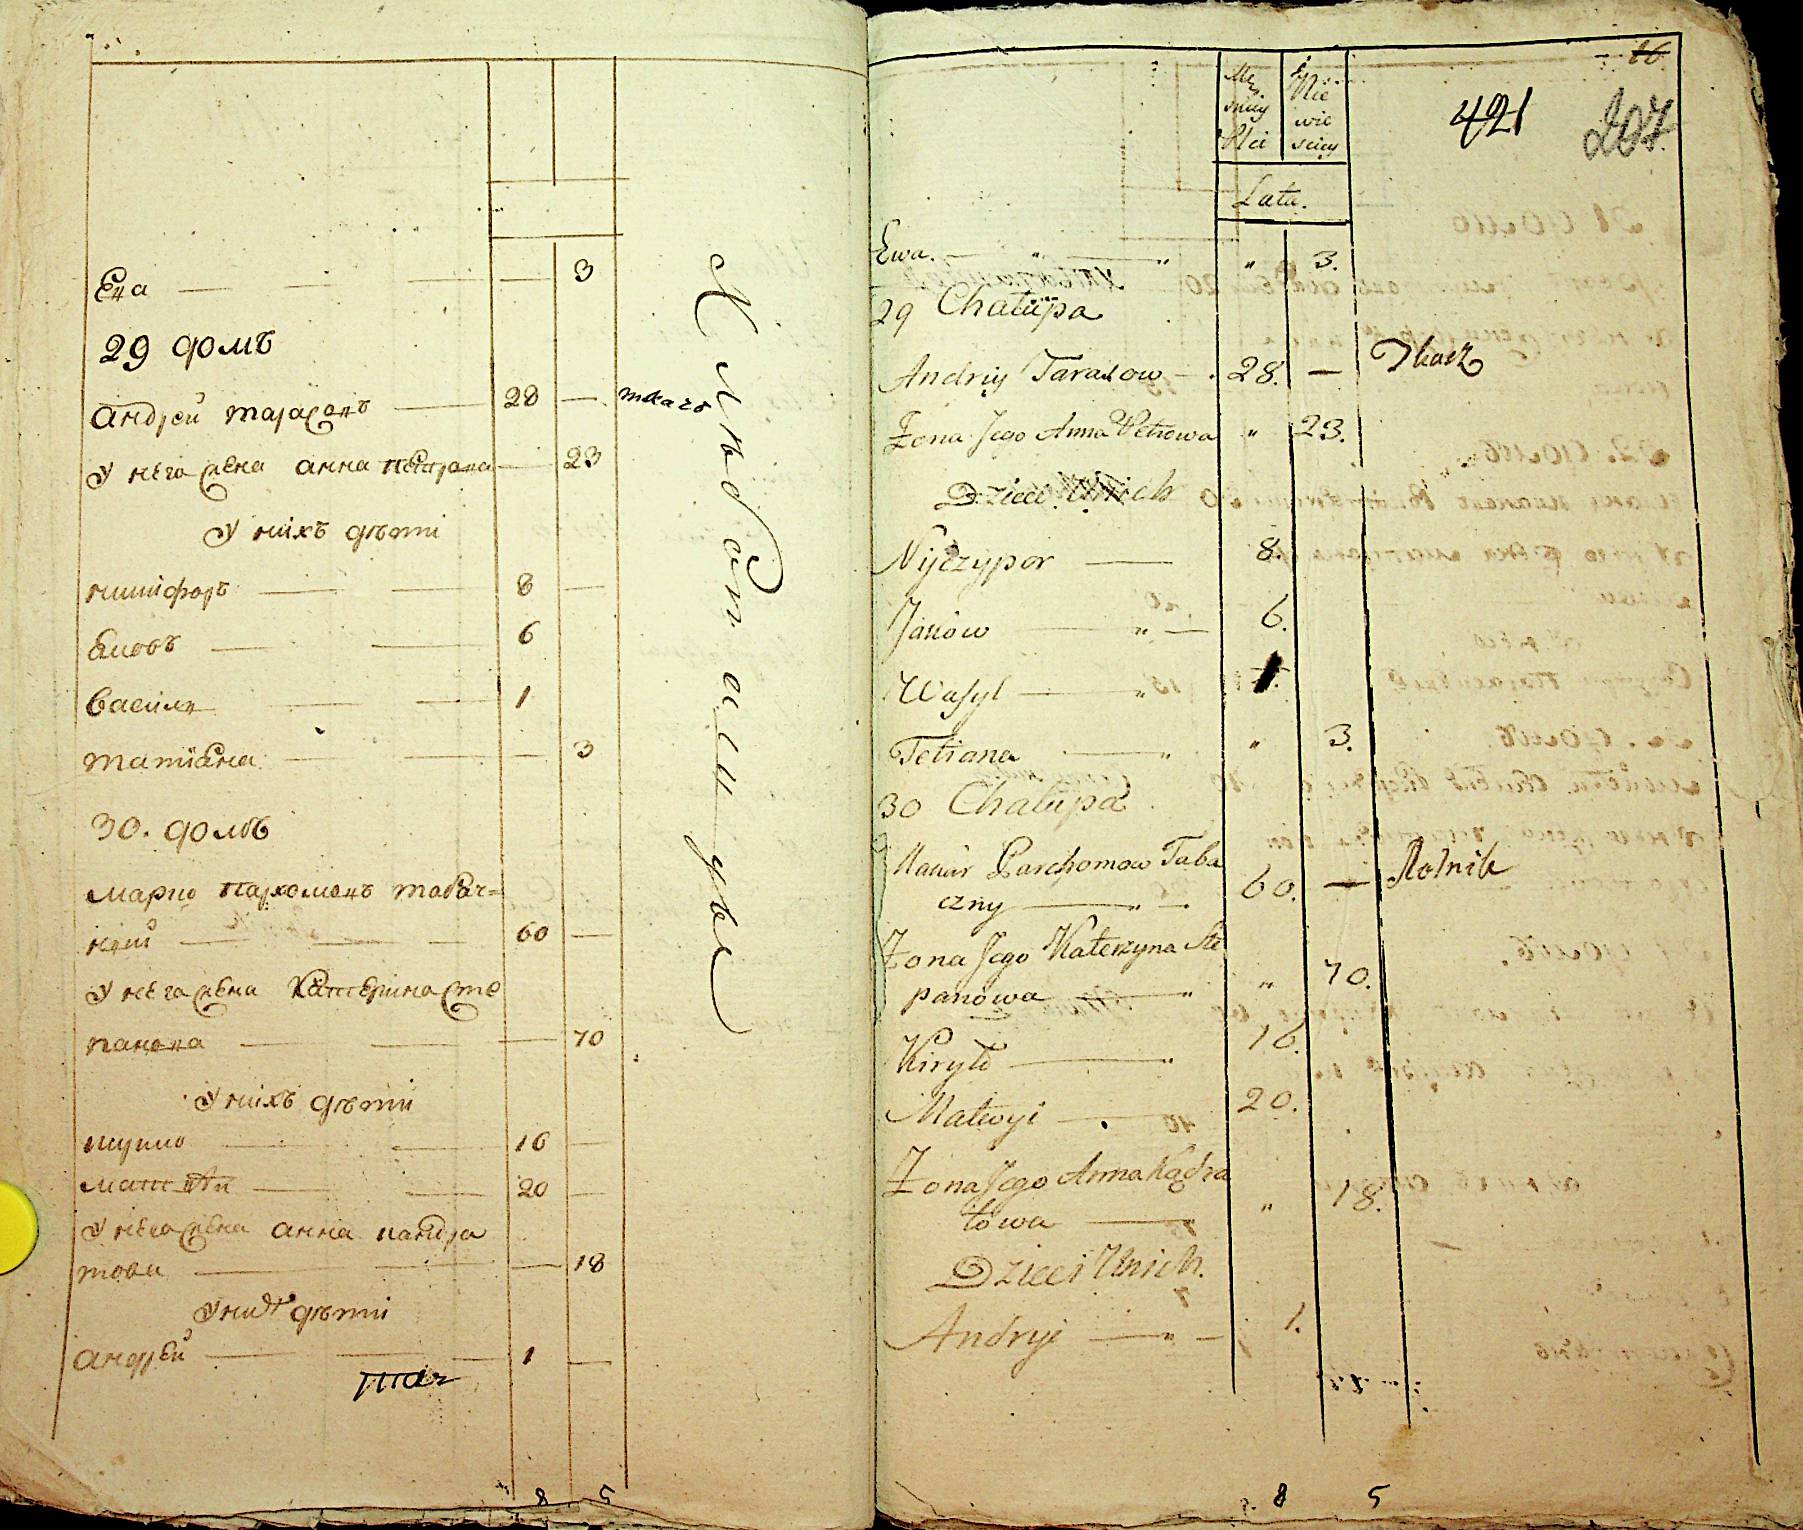 Ева — — — — 3
29 домъ
андрей тарасовъ — 28 — ткачъ
У него жена анна петрова — 23
У нихъ дѣти
никифоръ — — 8 —
яковъ — — 6
василь — — 1
татияна — — — 3
30. домъ
марко пархомовъ табач=
ный — — — 60 —
У него жена катерина сте
панова — — — 70
У нихъ дѣти
16 —
матвѣй — — 20 —
У него жена анна кандра
това — — — 18
У нихъ дѣти
андрей — — — 1 —
8 5
Хлѣбопашцы
16
421
207
Mę
skiey
Płci
Nie
wie
sciey
Lata.
Ewa. — " — " " 3.
29 Chałupa
Andriy Tarasow — 28. — Tkacz
Zona Jego Anna Petrowa " 23.
Dzieci Unich
Nyczypor — 8.
Jaków — " — 6.
Wasyl — " 1.
Tetiana — " " 3.
30 Chałupa
Markir Parchomow Taba
czny — " — 60. — Rolnik
Zona Jego Katerzyna Ste
panowa — " " 70.
Kiryło — " 16.
Matwyi — 20.
Zona Jego Anna Kądra
towa — " 18.
Dzieci Unich.
Andryi — " — 1.
8 5